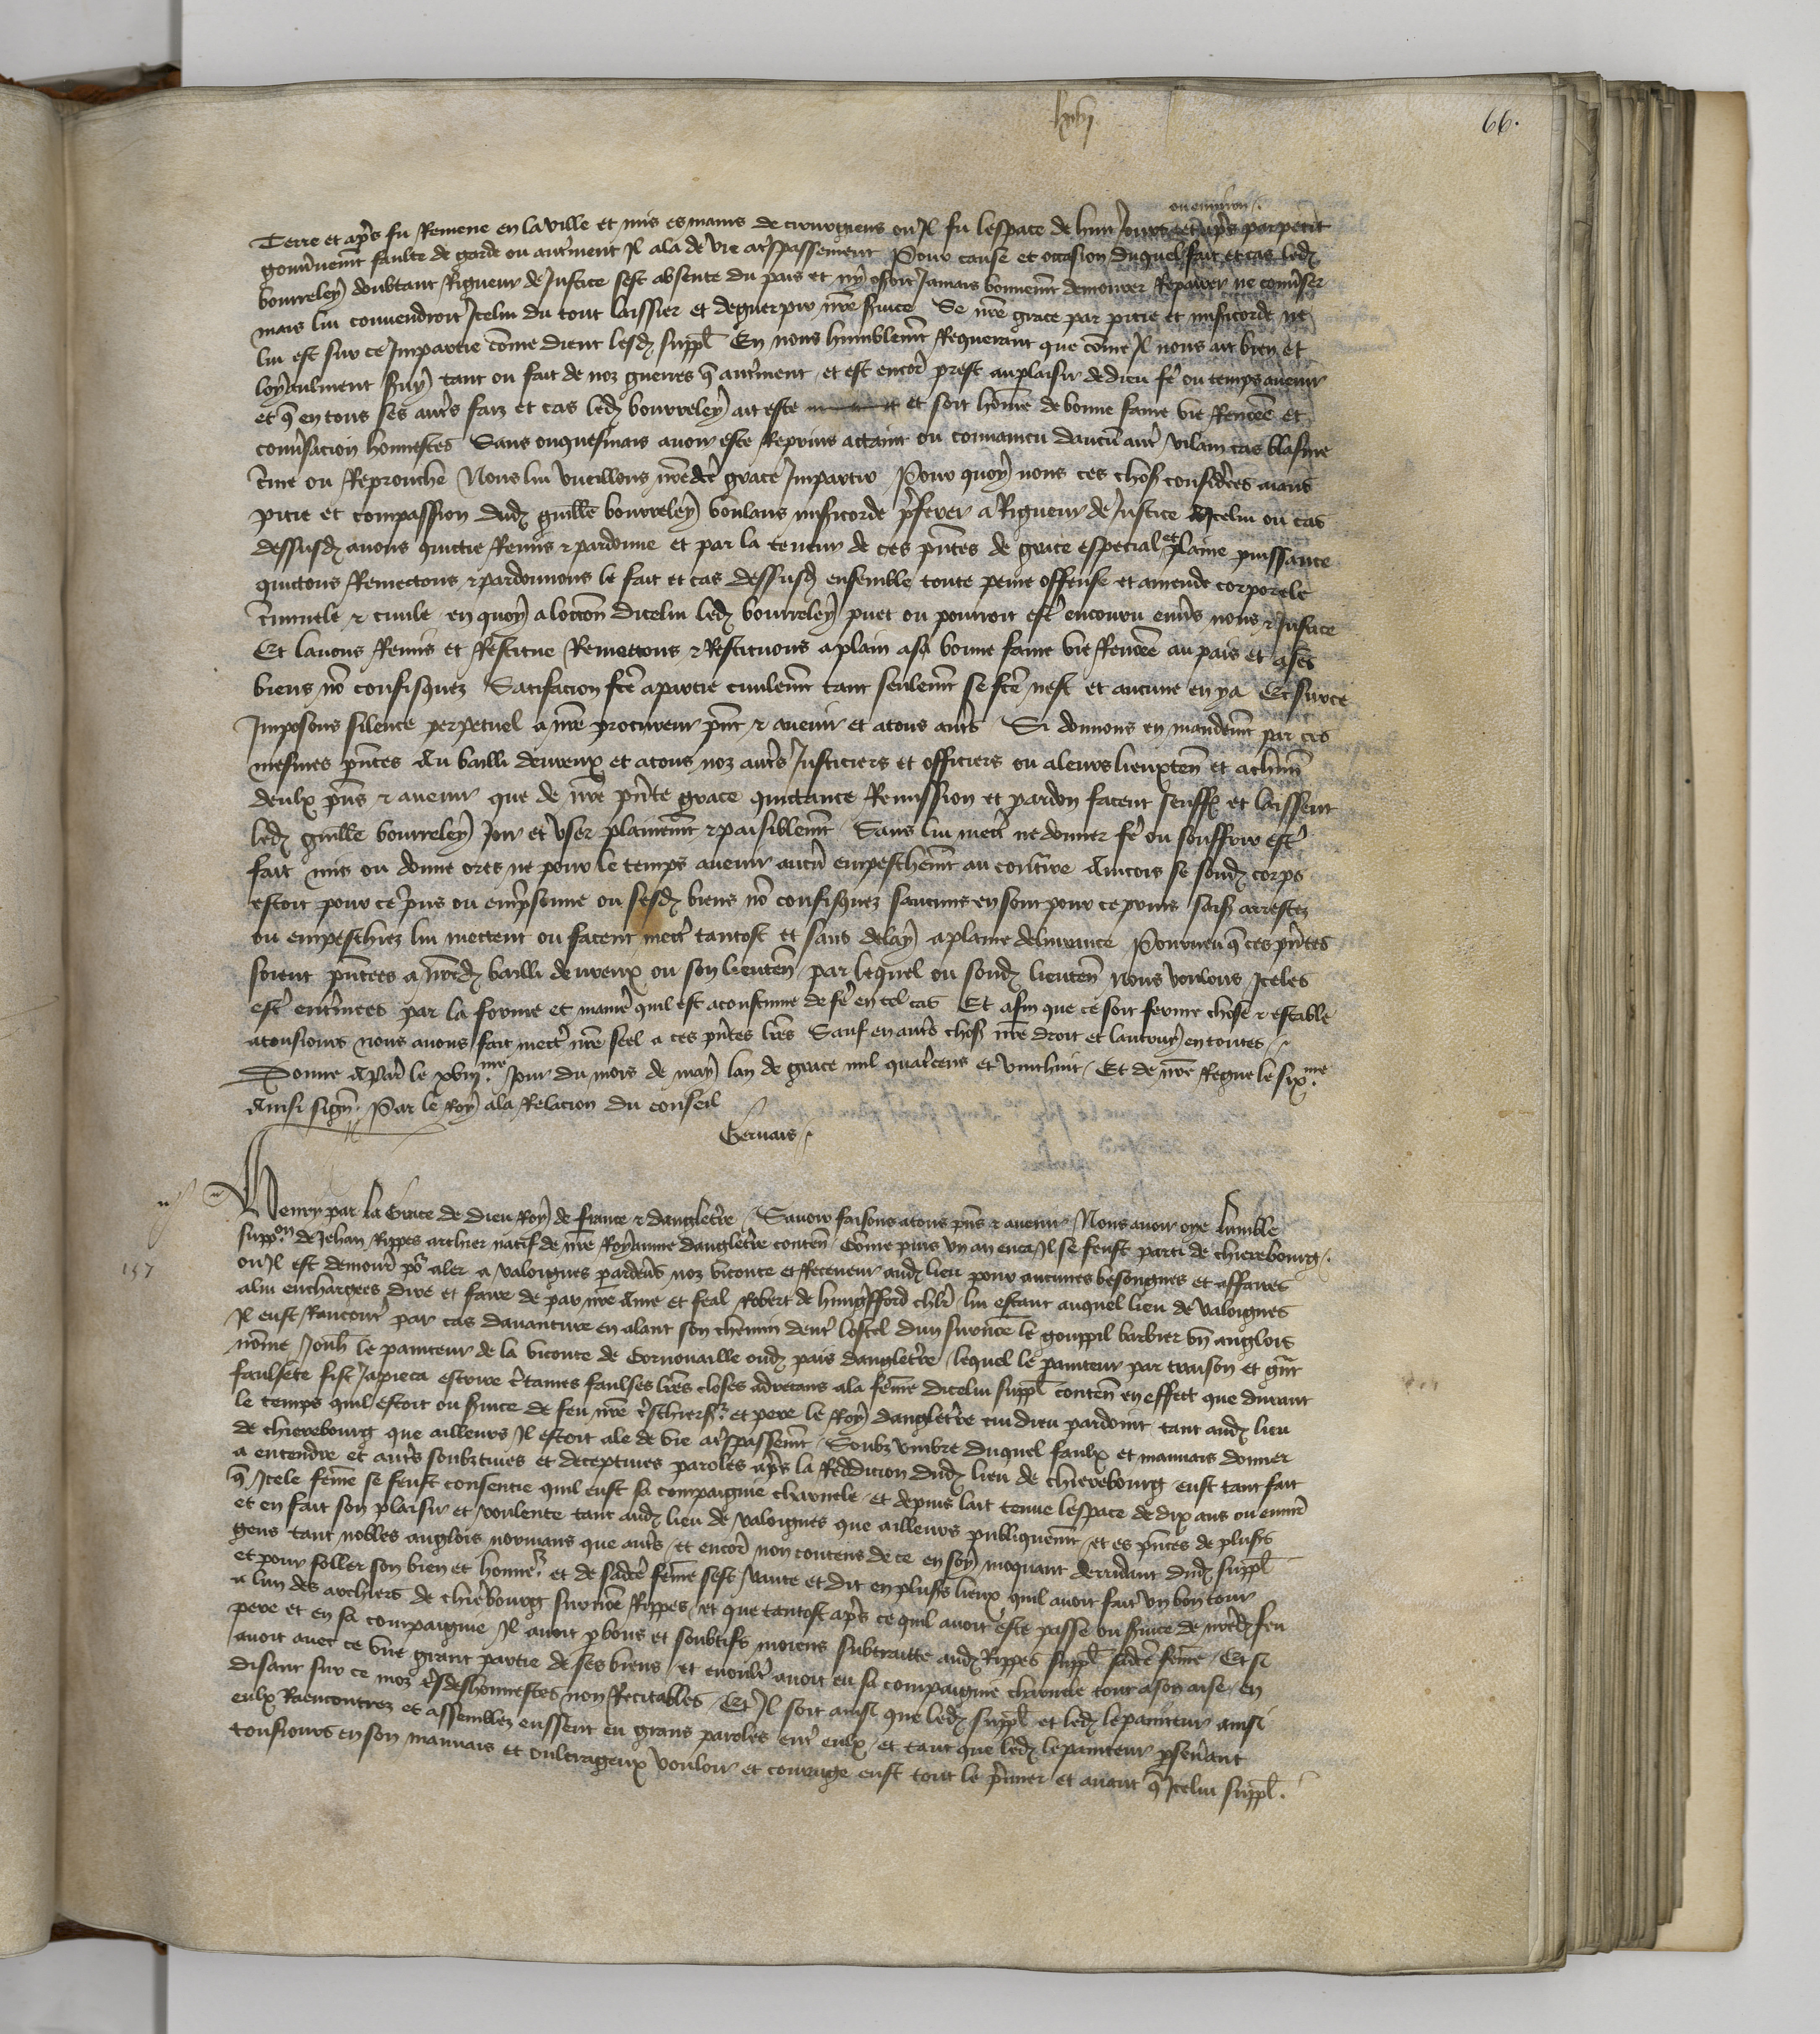 lxvj
66.
ou environ /.
Terre et ap̃s fu Remene en la ville et mis es mains de cirurgiens ou Il fu lespace de huit Jours et ap̃s par petit
gouv̾nem̃t faulte de garde ou autrem̃ent Il ala de vie a t̾spassement Pour cause et occasion duquel fait et cas led̾
bourreley doubtant Rigueur de Justice sest absente du pais et ny oseroit Jamais bonnem̃t demourer Repairer ne conv̾ser
mais lui convendroit Icelui du tout laissier et deguerpir nr̃e s̾vice Se nr̃e grace par pitie et mis̾icorde ne
lui est sur ce Impartie com̃e dient lesd̾ suppl̃ En nous humblem̃t Requerant que com̃e Il nous ait bien et
loyaulment s̾vy tant ou fait de noz guerres q̃ autrem̃ent et est encor̾ prest au plaisir de dieu fẽ ou temps avenir
et q̃ en tous ses aut̾s faiz et cas led̾ bourreley ait este et soit hom̃e de bonne fame vie Renom̃ee et
conv̾sacion honnestes Sans onquesmais avoir este Reprins attaint ou convaincu daucũ aut̾ vilain cas blasme
c̾me ou Reprouche Nous lui vueillons nr̃e dc̃e grace Impartir Pour quoy nous ces chos̾ considerees aians
pitie et compassion dud̾ guill̃e bourreley voulans mis̾icorde p̾ferer a Rigueur de Justice A Icelui ou cas
dessusd̾ avons quictie Remis & pardonne et par la teneur de ces p̃ntes de grace especial et plaine puissance
quictons Remectons & pardonnons le fait et cas dessusd̾ ensemble toute peine offense et amende corporele
c̾iminele & civile en quoy a loccõn dicelui led̾ bourreley puet ou pourroit est̾ encouru env̾s nous & Justice
Et lavons Remis et Restitue Remettons & Restituons a plain a sa bonne fame vie Renom̃ee au pais et a ses
biens nõ confisquez Satisfacion fc̃e a partie civilem̃t tant seulem̃t se fc̃e nest et aucune en y a Et sur ce
Imposons silence perpetuel a nr̃e procureur p̃nt & avenir et a tous aut̾s Si donnons en mandem̃t par ces
mesmes p̃ntes Au bailli devreux et a tous noz aut̾s Justiciers et officiers ou a leurs lieuxteñ et a chũn
deulx p̃ns & avenir que de nr̃e p̃nte grace quictance Remission et pardon facent seuff̾ et laissent
led̾ guill̃e bourreley Joir et user plainem̃t & paisiblem̃t Sans lui mect̾ ne donner fẽ ou souffrir est̾
fait mis ou donne ores ne pour le temps avenir aucũ empeschem̃t au cont̾re Aincois se sond̾ corps
estoit pour ce p̾ns ou emp̾sonne ou sesd̾ biens nõ confisquez saucuns en sont pour ce prins saisiz arrestez
ou empeschiez lui mettent ou facent mect̾ tantost et sans delay a plaine delivrance Pourveu q̃ ces p̃ntes
soient p̃ntees a nr̃ed̾ bailli devreux ou son lieuteñ par lequel ou sond̾ lieuteñ nous voulons Iceles
est̾ ent̾inees par la forme et manie̾ quil est acoustume de fẽ en tel cas Et afin que ce soit ferme chose & estable
a tousiours nous avons fait mect̾ nr̃e seel a ces p̃ntes lr̃es Sauf en aut̾s chos̾ nr̃e droit et lautruy en toutes /
Donne A par̾ le xviij.me Jour du mois de may lan de grace mil quat̾cens et vinthuit / Et de nr̃e Regne le six.me
Ainsi signe̾. Par le Roy a la Relacion du conseil
Gervais /.
Henry par la Grace de Dieu Roy de france & dangleter̾re / Savoir faisons a tous p̃ns & avenir / Nous avoir oye lumble
suppõn de Jehan Rippes archier natif de nr̃e Royaume dangleter̾re conteñ / Com̃e puis un an enca Il se feust parti de chierebourg /.
157
ou Il est demour̃ po̾ aler a valoignes par dev̾s noz viconte et Receveur aud̾ lieu pour aucunes besongnes et affaires
a lui enchargees dire et faire de par nr̃e Ame et feal Robert de hung̾fford chlr̃ / lui estant auquel lieu de valoignes
Il eust Rancont̾ par cas davanture en alant son chemin dev̾t lostel dun surnõme le gouppil barbier uñ anglois
nõme Jouh̃ le painteur de la viconte de Cornouaille oud̾ pais dangleter̾re / lequel le painteur par traison et gr̃nt
faulsete fist Ja pieca escrire c̾taines faulses lr̃es closes adrecans a la fem̃e dicelui suppl̃ conteñ en effect que durant
le temps quil estoit ou s̾vice de feu nr̃e t̾schier s.r et pere le Roy dangleter̾re cui dieu pardoint / tant aud̾ lieu
de chierebourg que ailleurs Il estoit ale de vie a t̾spassem̃t / Soubz umbre duquel faulx et mauvais donner
a entendre et aut̾s soubztives et deceptives paroles ap̃s la Reddicion dud̾ lieu de chierebourg eust tant fait
q̃ Icele fem̃e se feust consentie quil eust sa compaignie charnele / et depuis lait tenue lespace de dix ans ou envir̃
et en fait son plaisir et voulente tant aud̾ lieu de valoignes que ailleurs publiquem̃t / et es p̃nces de plus̾s
gens tant nobles anglois normans que aut̾s / et encor̾ non contens de ce en soy moquant derridant dud̾ suppl̃
et pour foller son bien et honne.r et de sadc̃e fem̃e sest vante et dit en plus̾s lieux quil avoit fait un bon tour
a lun des archiers de chiereb̾ourg surnõme Rippes / et que tantost ap̃s ce quil avoit este passe ou s̾vice de nr̃ed̾ feu
pere et en sa compaignie Il avoit p̾ bons et soubtifs moiens subtraitte aud̾ Rippes suppl̃ sadc̃e fem̃e / Et si
avoit avec ce une grant partie de ses biens / et enoult̾ avoit eu sa compaignie charnele tout a son aise / en
disant sur ce moz t̾sdeshonnestes non Recitables / Et Il soit ainsi que led̾ suppl̃ et led̾ le painteur ainsi
eulx Raencontrez et assemblez eussent eu grans paroles ent̾ eulx / et tant que led̾ le painteur p̾sev̾ant
tousiours en son mauvais et oultrageux vouloir et courage eust tout le p̾mier et avant q̃ Icelui suppl̃ .